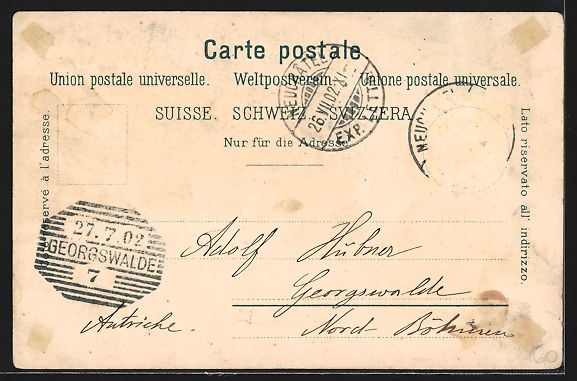 Carte postale
Union postale universelle. Weltpostverein. Unione postale universale.
SUISSE. SCHWEIZ. SVIZZERA.
Nur für die Adresse.
réservé à l'adresse.
Lato riservato all' indirizzo.
NEUCHATEL
26.VII.02.XI
EXP. LETTR.
NEUCH
27.7.02
GEORGSWALDE
7
Adolf Hübner
Georgswalde
Autriche. Nord Böhmen
60